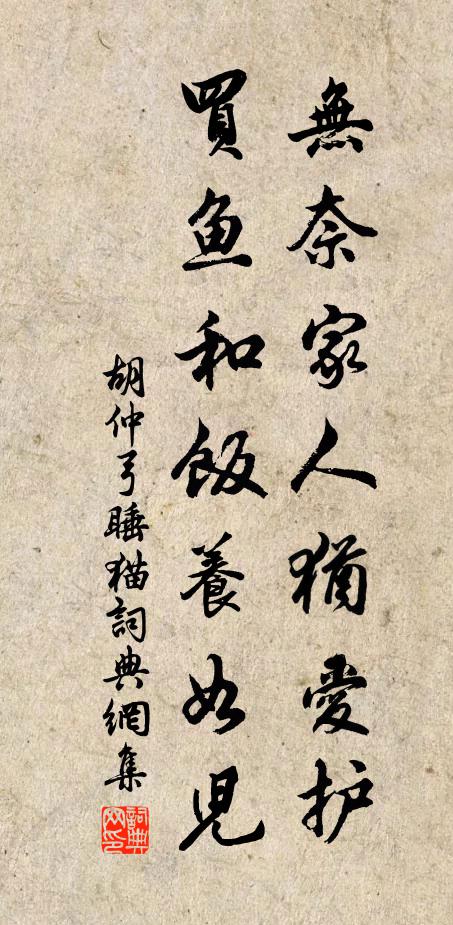 無奈家人猶愛护
買鱼和飯養如児
胡仲弓睡猫詞典網集
詞典网印